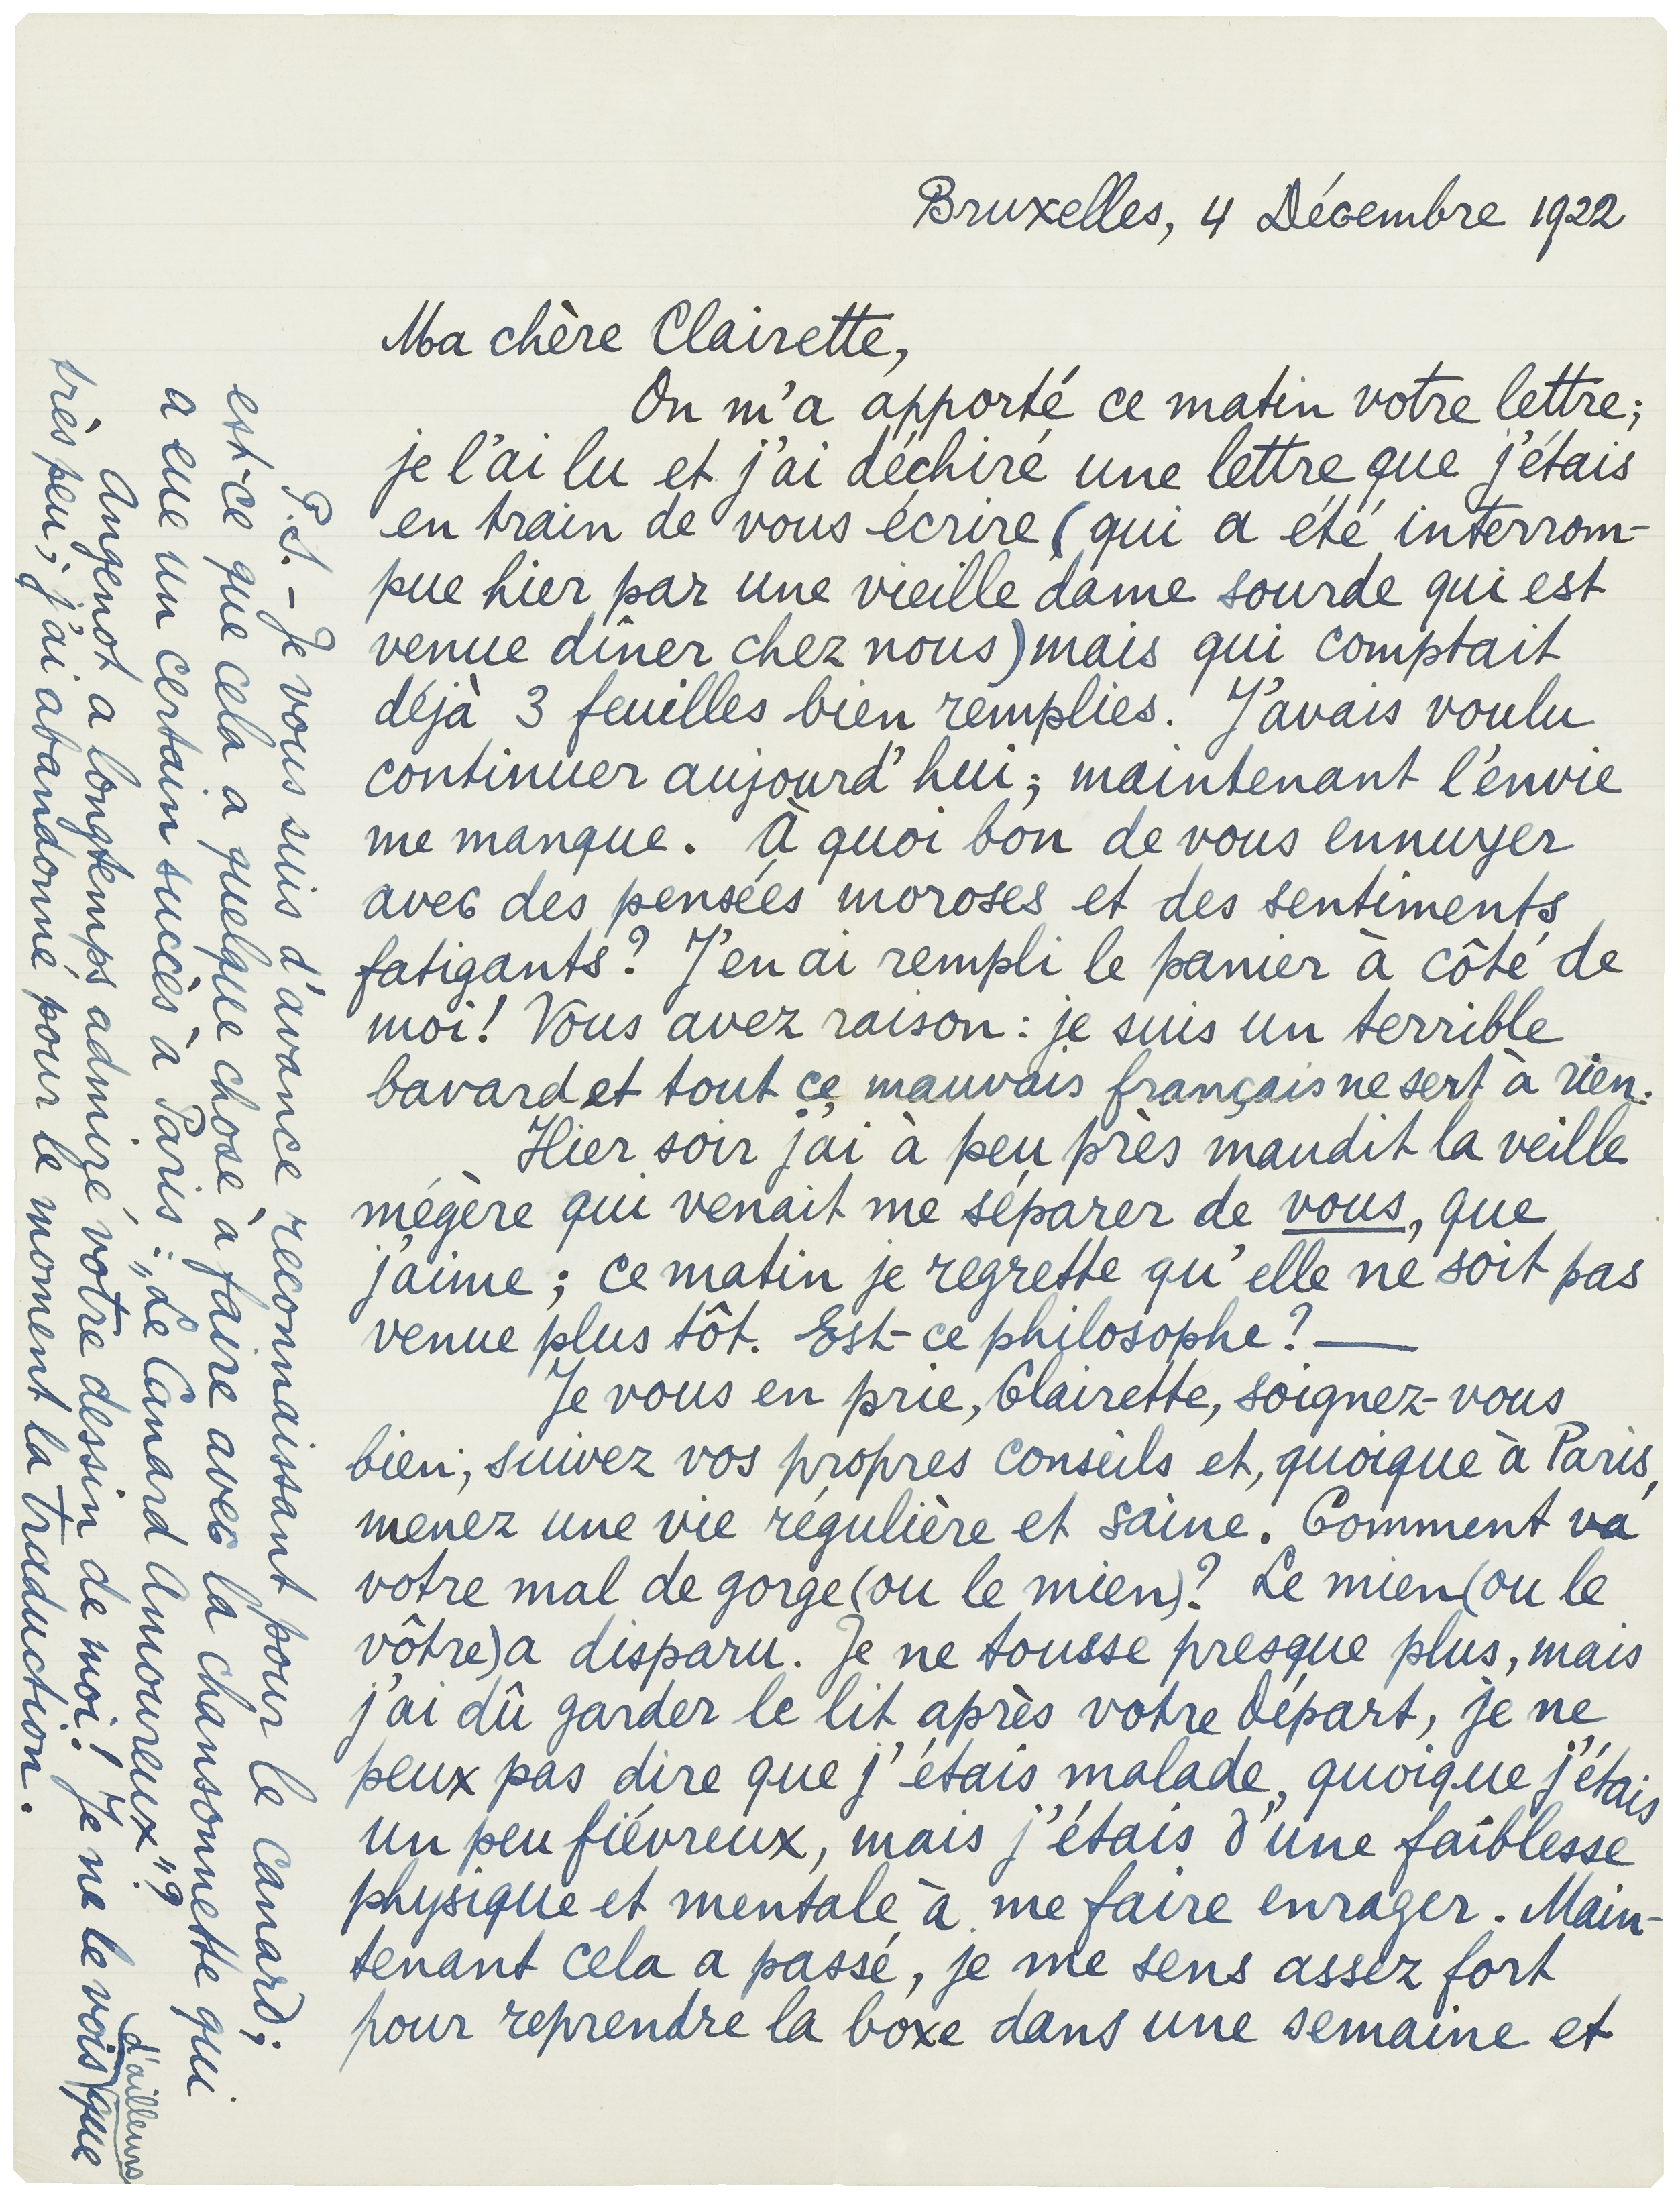 Bruxelles, 4 Décembre 1922
Ma chère Clairette,
On m'a apporté ce matin votre lettre;
je l'ai lu et j'ai déchiré une lettre que j'étais
en train de vous écrire (qui a été interrom-
pue hier par une vieille dame sourde qui est
venue dîner chez nous) mais qui comptait
déjà 3 feuilles bien remplies. J'avais voulu
continuer aujourd'hui; maintenant l'envie
me manque. À quoi bon de vous ennuyer
avec des pensées moroses et des sentiments
fatigants? J'en ai rempli le panier à côté de
moi! Vous avez raison: je suis un terrible
bavard et tout ce mauvais français ne sert à rien.
Hier soir j'ai à peu près maudit la veille
mégère qui venait me séparer de vous, que
j'aime; ce matin je regrette qu'elle ne soit pas
venue plus tôt. Est-ce philosophe? —
Je vous en prie, Clairette, soignez-vous
bien; suivez vos propres conseils et, quoique à Paris,
menez une vie régulière et saine. Comment va
votre mal de gorge (ou le mien)? Le mien (ou le
vôtre) a disparu. Je ne tousse presque plus, mais
j'ai dû garder le lit après votre départ, je ne
peux pas dire que j'étais malade, quoique j'étais
un peu fiévreux, mais j'étais d'une faiblesse
physique et mentale à me faire enrager. Main-
tenant cela a passé, je me sens assez fort
pour reprendre la boxe dans une semaine et
P.S. - Je vous suis d'avance reconnaissant pour le canard;
est-ce que cela a quelque chose à faire avec la chansonnette qui
a eue un certain succès à Paris: „Le Canard Amoureux"?
Angenot a longtemps admiré votre dessin de moi! Je ne le vois d'ailleurs que
très peu; j'ai abandonné pour le moment la traduction.